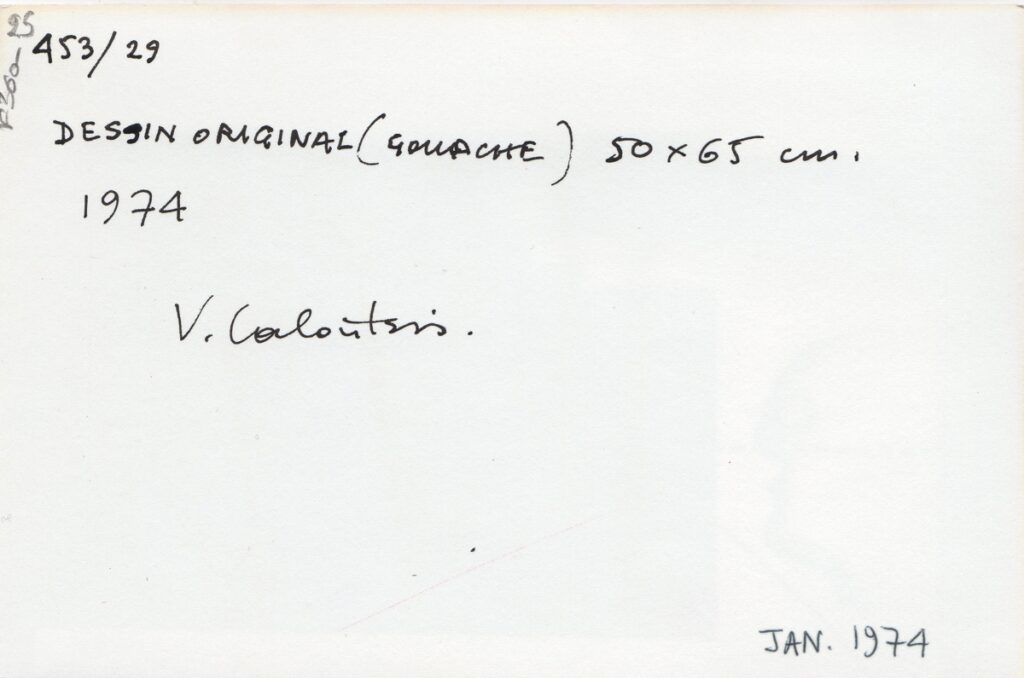 453/29
DESSIN ORIGINAL (GOUACHE) 50 x 65 cm.
1974
V. Caloutsis.
JAN. 1974